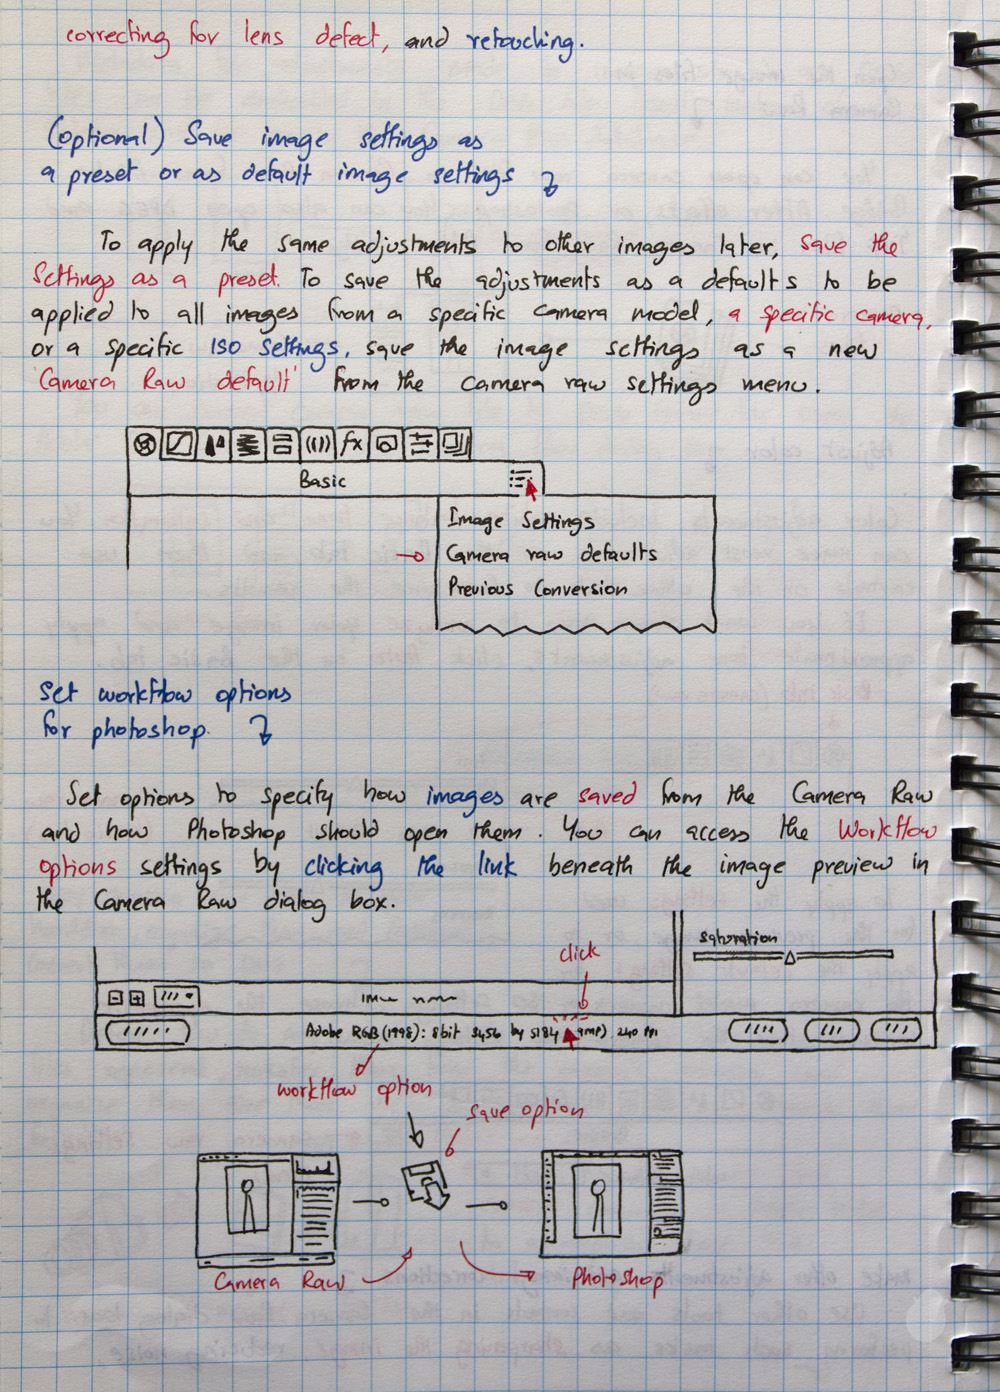 correcting for lens defect, and retouching.
(optional) Save image settings as
a preset or as default image settings
To apply the same adjustments to other images later, save the
Settings as a preset. To save the adjustments as a defaults to be
applied to all images from a specific camera model, a specific camera,
or a specific ISO settings, save the image settings as a new
'Camera Raw default' from the camera raw settings menu.
fx
Basic
Image Settings
Camera raw defaults
Previous Conversion
Set workflow options
for photoshop.
Set options to specify how images are saved from the Camera Raw
and how Photoshop should open them. You can access the Workflow
options settings by clicking the link beneath the image preview in
the Camera Raw dialog box.
saturation
click
Adobe RGB (1998): 8bit 3456 by 5184 mp) 240 PPI
workflow option
save option
Camera Raw
Photoshop